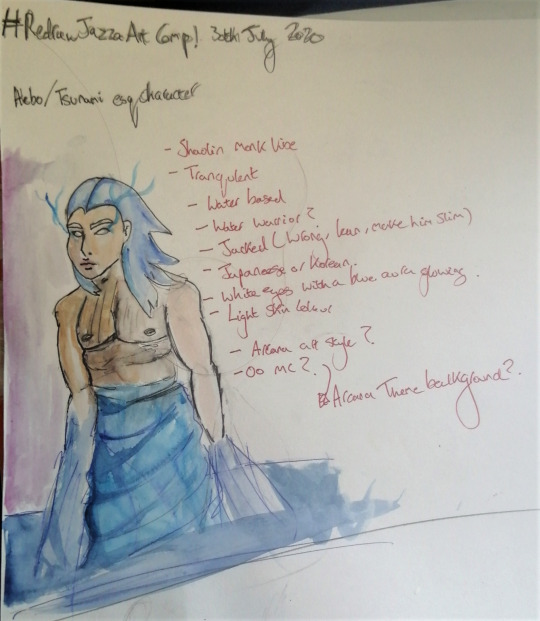 #RedrawJazzaArt Comp! 30th July 2020
/Tsunami esq character
- Shaolin monk vibe
- Tranqulent
- Water based
- Water warrior?
- Jacked (Wrong, lean, make him slim)
- Japanese or Korean.
- White eyes with a blue aura glowing.
- Light skin colour
- Arcana art style?
- Oo MC?
Arcana Theme background?